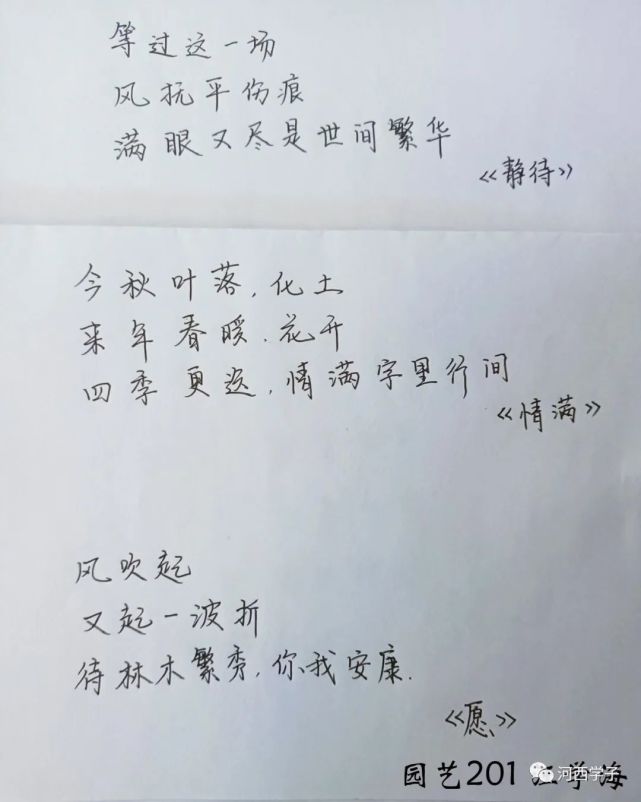 等过这一场
风抚平伤痕
满眼又尽是世间繁华
《静待》
今秋叶落,化土
来年春暖.花开
四季更迭,情满字里行间
《情满》
风吹起
又起一波折
待林木繁秀,你我安康.
《愿》
园艺201 江学海
河西学子